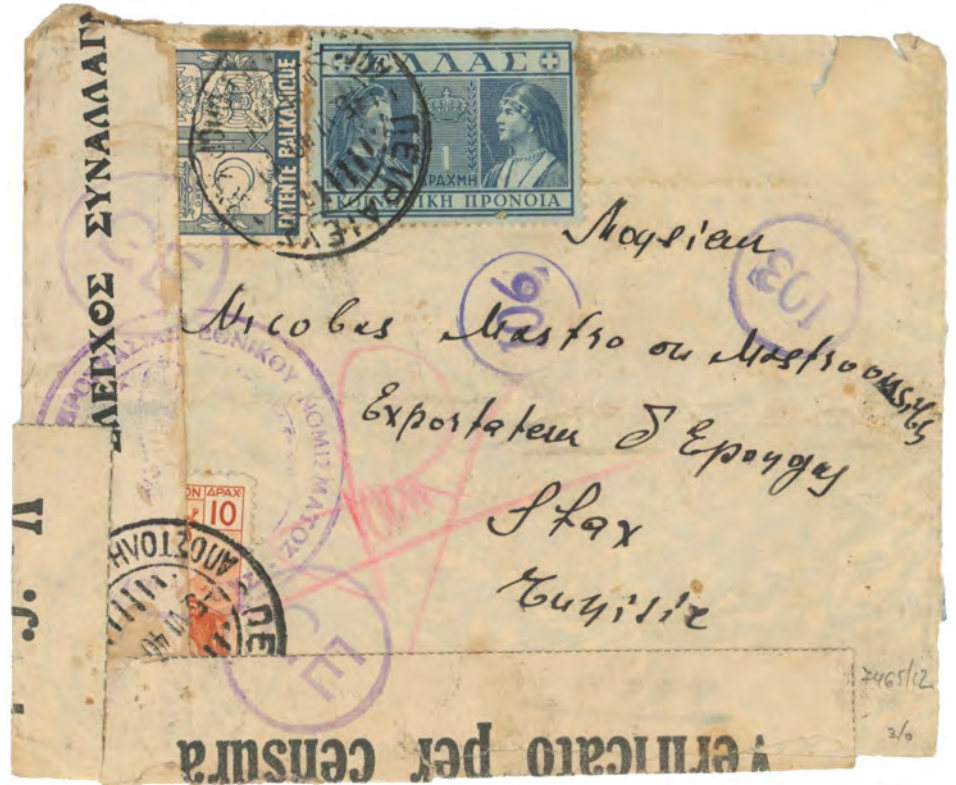 ΕΛΕΓΧΟΣ ΣΥΝΑΛΛΑΓΜ
ENTENTE BALKANIQUE
ΕΛΛΑΣ
1
ΔΡΑΧΜΗ
ΚΟΙΝΩΝΙΚΗ ΠΡΟΝΟΙΑ
ΠΕΙΡΑΙΕΥΣ
Moysieur
106
103
Nicobas Mastro ou Mastroo
Exportateur d'Epoyges
Sfax
Tuyisie
ΕΘΝΙΚΟΥ ΝΟΜΙΣΜΑΤΟΣ
ΔΡΑΧ
10
ΑΠΟΣΤΟΛΗ
ΠΕ
VI 40
Verificato per censura
7465/12
3/0